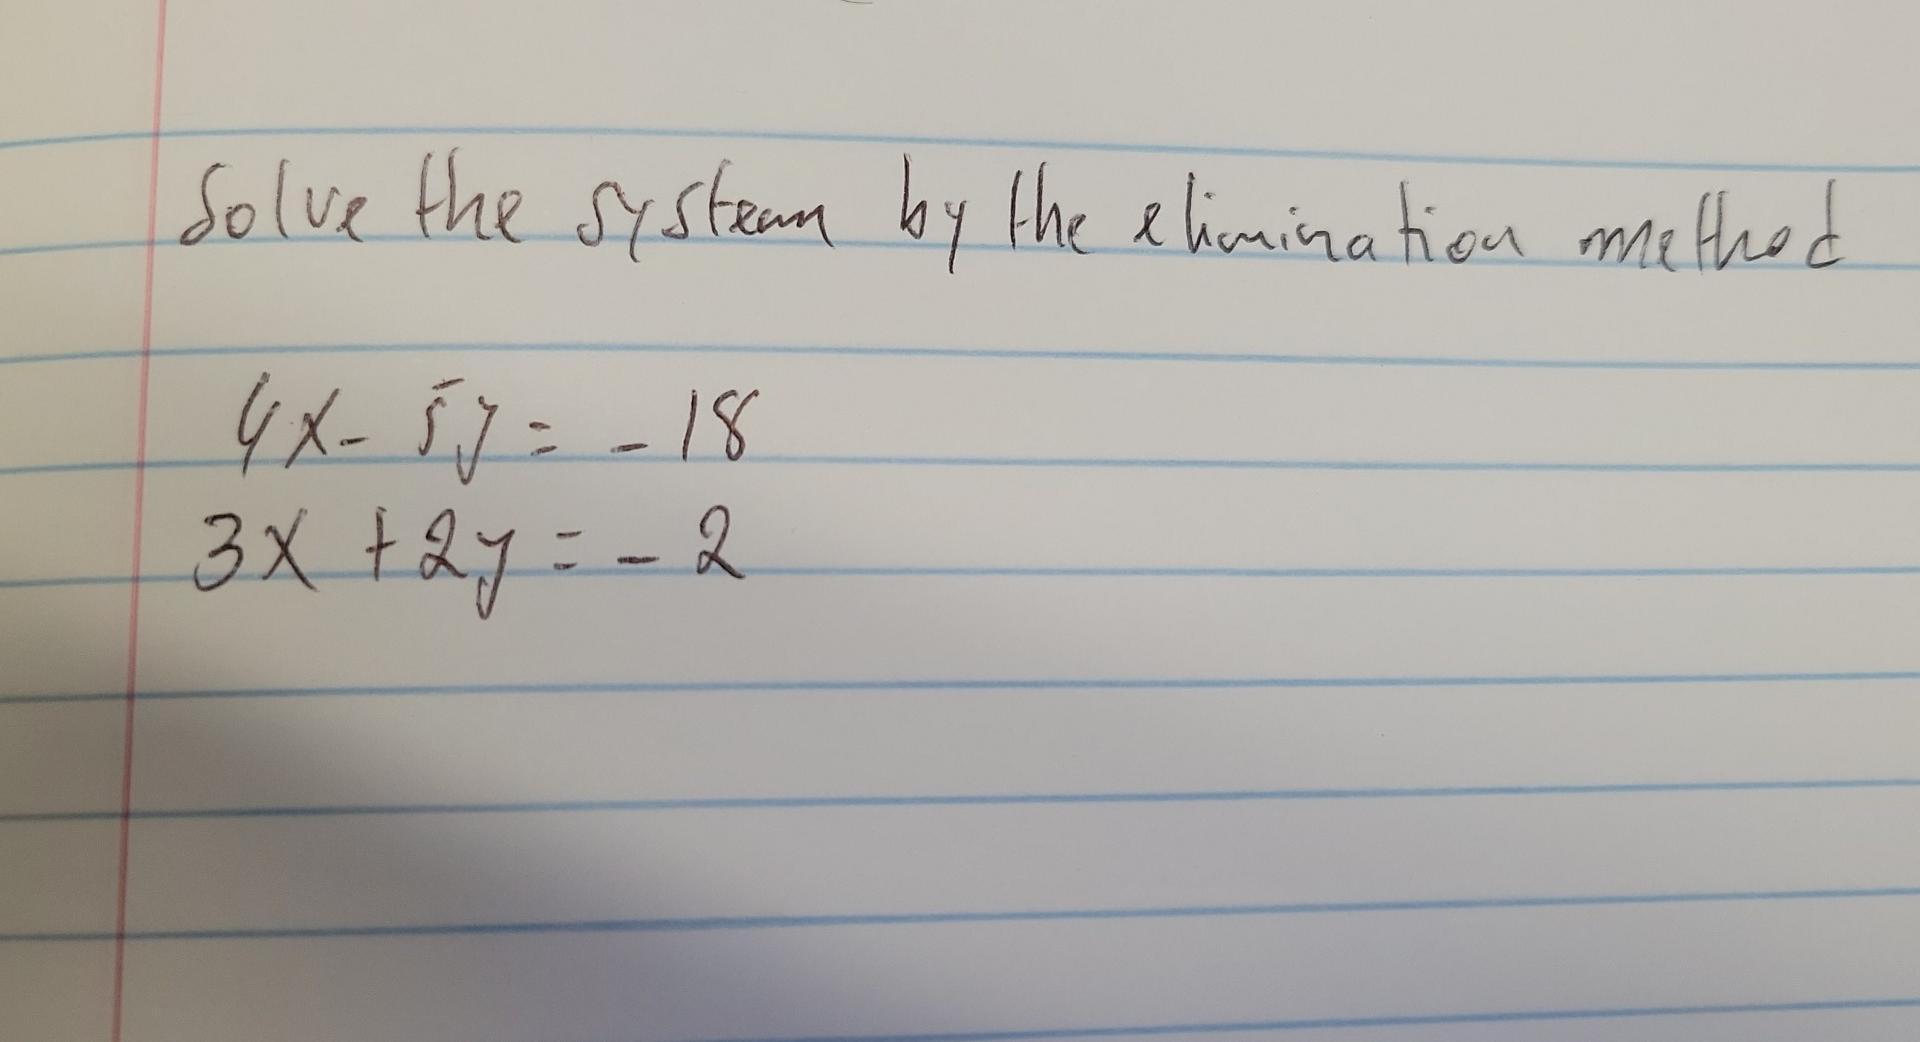 Solve the system by the elimination method
4x - 5y = - 18
3x + 2y = - 2